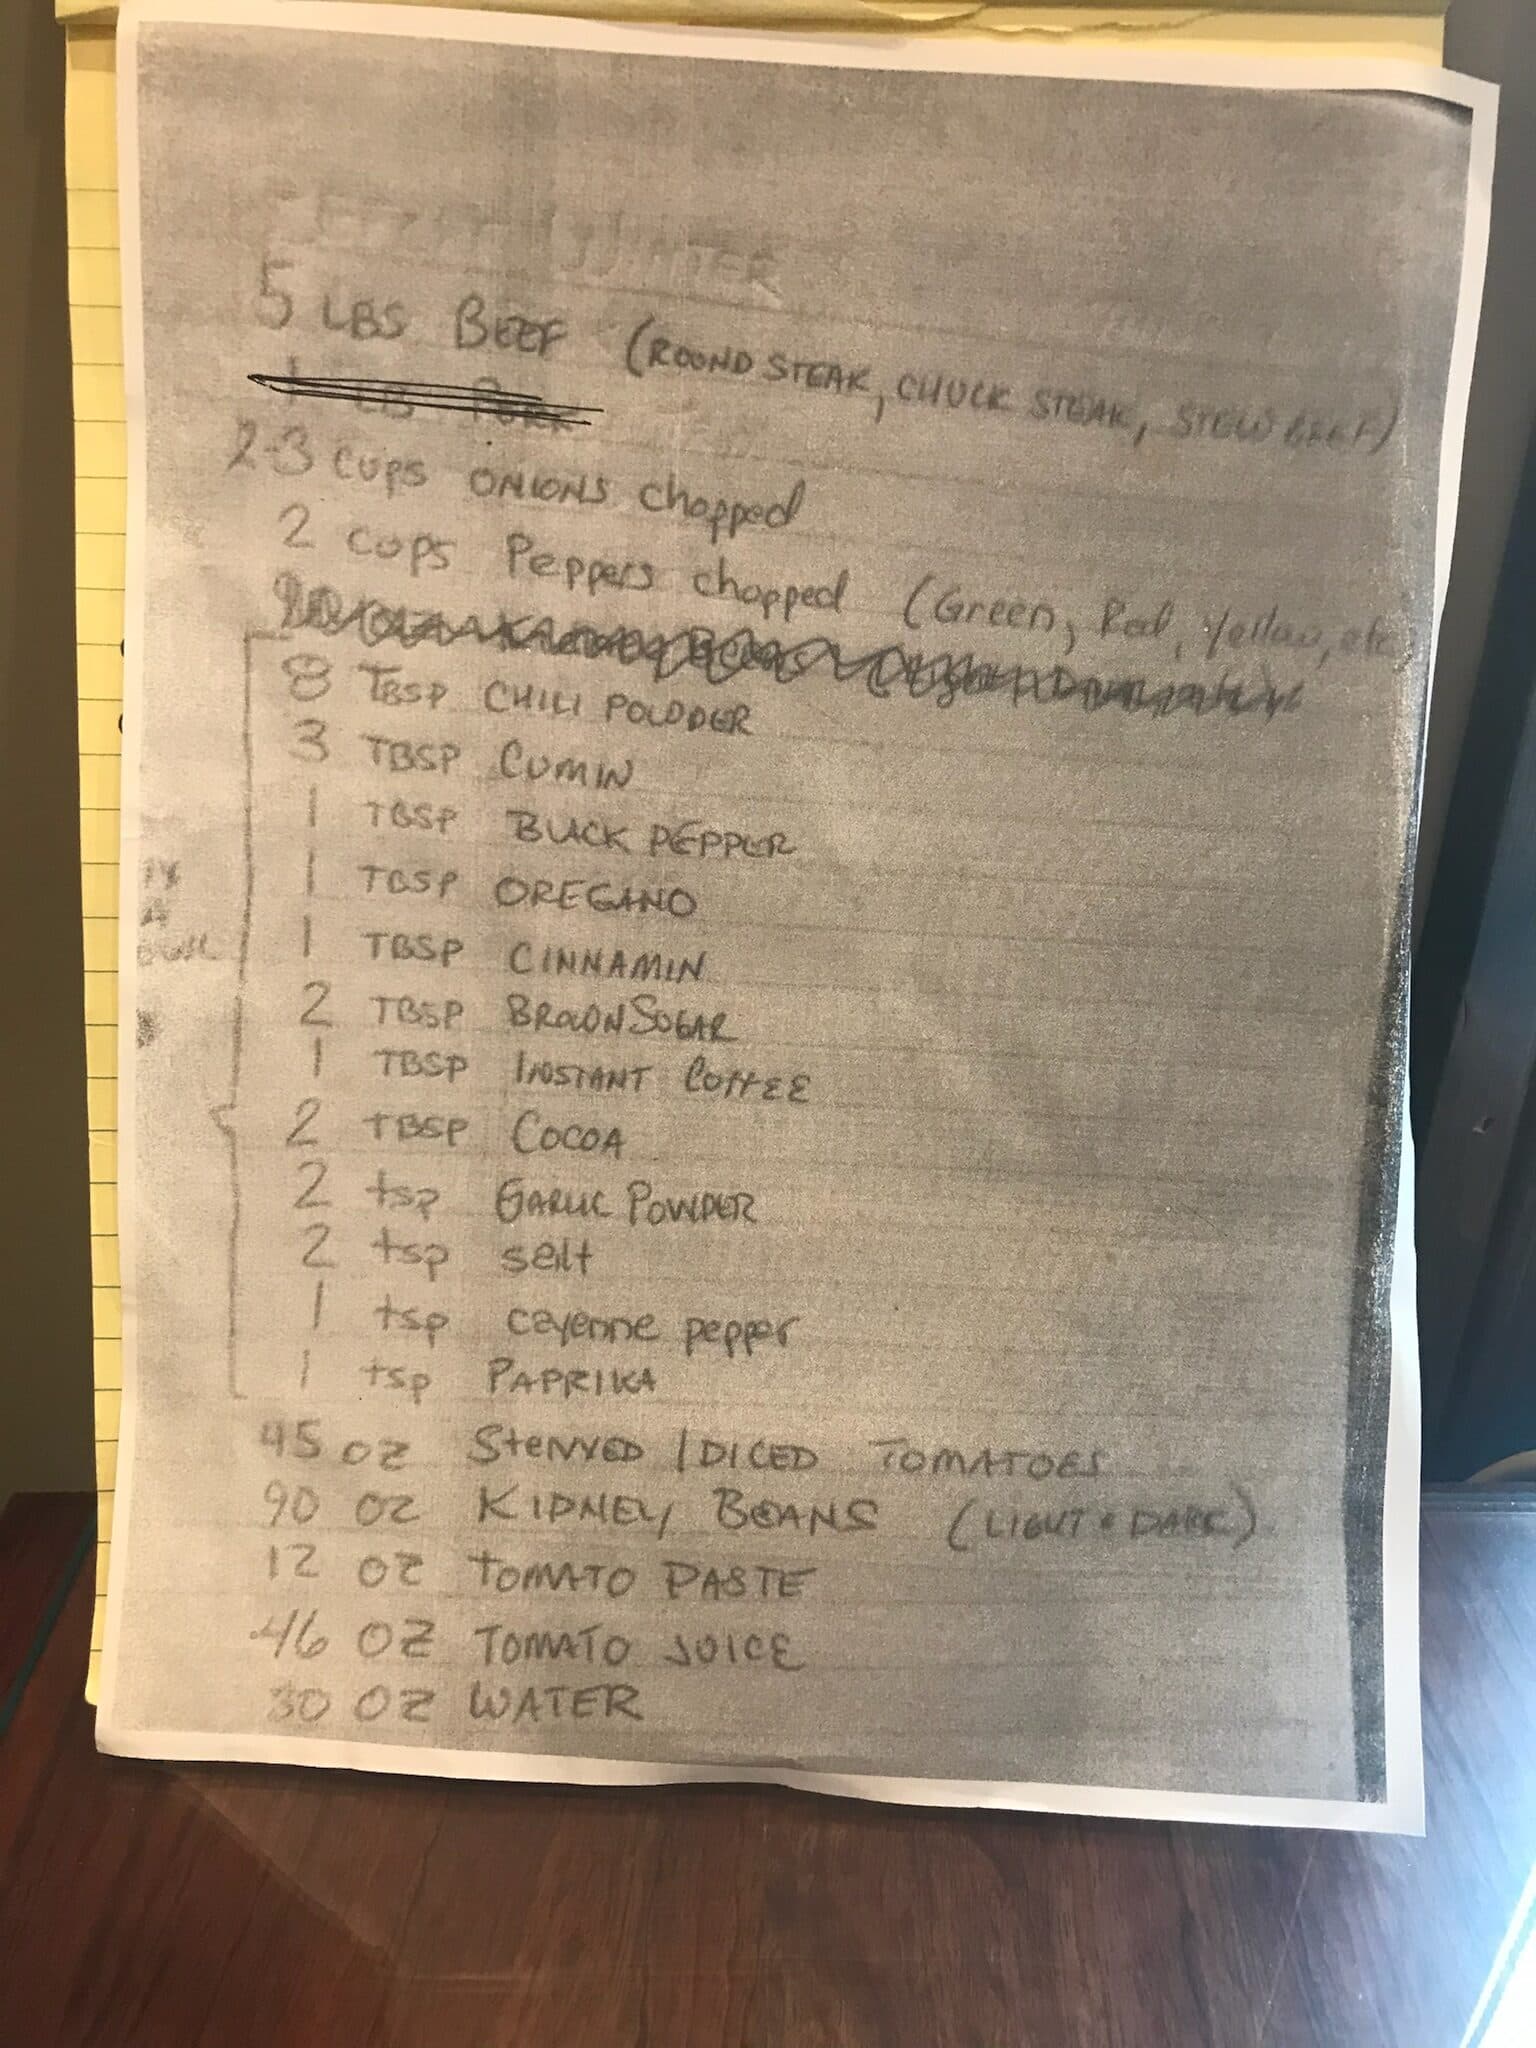 5 LBS BEEF (ROUND STEAK, CHUCK STEAK, STEW BEEF)
LB PORK
2-3 CUPS ONIONS chopped
2 CUPS Peppers chopped (Green, Red, Yellow, etc
90 OZ Kidney Beans (Light
8 TBSP CHILI POWDER
3 TBSP CUMIN
1 TBSP BLACK PEPPER
1 TBSP OREGANO
1 TBSP CINNAMIN
2 TBSP BROWN SUGAR
1 TBSP INSTANT COFFEE
2 TBSP COCOA
2 tsp GARLIC POWDER
2 tsp salt
1 tsp cayenne pepper
1 tsp PAPRIKA
45 OZ STEWED / DICED TOMATOES
90 OZ KIDNEY BEANS (LIGHT & DARK)
12 OZ TOMATO PASTE
46 OZ TOMATO JUICE
30 OZ WATER